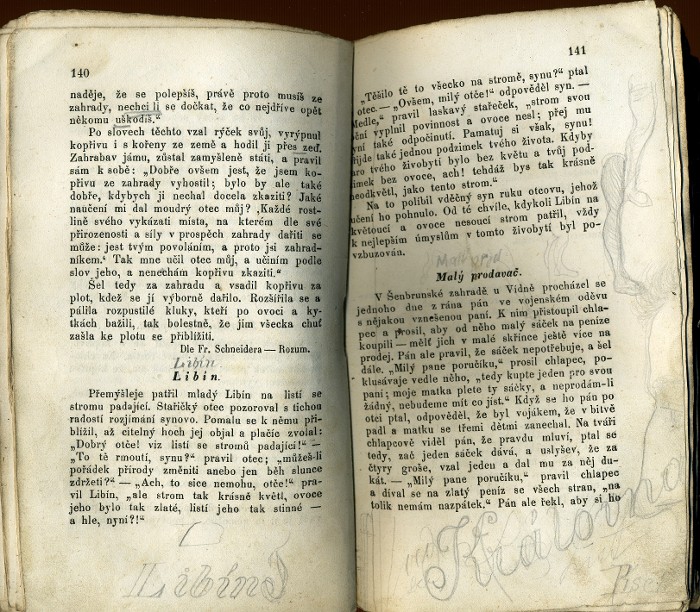 140
naděje, že se polepšíš, právě proto musíš ze
zahrady, nechci li se dočkat, že co nejdříve opět
někomu uškodíš.“
Po slovech těchto vzal rýček svůj, vyrýpnul
kopřivu i s kořeny ze země a hodil ji přes zeď.
Zahrabav jámu, zůstal zamyšleně státi, a pravil
sám k sobě: „Dobře ovšem jest, že jsem ko-
přivu ze zahrady vyhostil; bylo by ale také
dobře, kdybych ji nechal docela zkaziti? Jaké
naučení mi dal moudrý otec můj? ‚Každé rost-
lině svého vykázati místa, na kterém dle své
přirozenosti a síly v prospěch zahrady dařiti se
může: jest tvým povoláním, a proto jsi zahrad-
níkem.‘ Tak mne učil otec můj, a učiním podle
slov jeho, a nenechám kopřivu zkaziti.“
Šel tedy za zahradu a vsadil kopřivu za
plot, kdež se jí výborně dařilo. Rozšířila se a
pálila rozpustilé kluky, kteří po ovoci a ky-
tkách bažili, tak bolestně, že jim všecka chuť
zašla ke plotu se přiblížiti.
Dle Fr. Schneidera — Rozum.
Libín
Libín.
Přemýšleje patřil mladý Libín na listí se
stromu padající. Stařičký otec pozoroval s tichou
radostí rozjímání synovo. Pomalu se k němu při-
blížil, až citelný hoch jej objal a plačío zvolal:
„Dobrý otče! viz listí se stromů padající!“ —
„To tě rmoutí, synu?“ pravil otec; „můžeš-li
pořádek přírody změniti anebo jen běh slunce
zdržeti?“ — „Ach, to sice nemohu, otče!“ pra-
vil Libín, „ale strom tak krásně květl, ovoce
jeho bylo tak zlaté, listí jeho tak stinné —
a hle, nyní?!“
Libín
141
„Těšilo tě to všecko na stromě, synu?“ ptal
otec. — „Ovšem, milý otče!“ odpověděl syn. —
Medle,“ pravil laskavý stařeček, „strom svou
vyplnil povinnost a ovoce nesl; přej mu
také odpočinutí. Pamatuj si však, synu!
také jednou podzimek tvého života. Kdyby
tvého živobytí bylo bez květu a tvůj pod-
bez ovoce, ach! tehdáž bys tak krásně
neodkvětl, jako tento strom.“
Na to políbil vděčný syn ruku otcovu, jehož
učení ho pohnulo. Od té chvíle, kdykoli Libín na
květoucí a ovoce nesoucí strom patřil, vždy
k nejlepším úmyslům v tomto živobytí byl po-
vzbuzován.
Malý prodavač.
V Šenbrunské zahradě u Vídně procházel se
jednoho dne z rána pán ve vojenském oděvu
s nějakou vznešenou paní. K nim přistoupil chla-
pec a prosil, aby od něho malý sáček na peníze
koupili — měl jich v malé skřínce ještě více na
prodej. Pán ale pravil, že sáček nepotřebuje, a šel
dále. „Milý pane poručíku,“ prosil chlapec, po-
klusávaje vedle něho, „tedy kupte jeden pro svou
paní; moje matka plete ty sáčky, a neprodám-li
žádný, nebudeme mít co jíst.“ Když se ho pán po
otci ptal, odpověděl, že byl vojákem, že v bitvě
padl a matku se třemi dětmi zanechal. Na tváři
chlapcově viděl pán, že pravdu mluví, ptal se
tedy, zač jeden sáček dává, a uslyšev, že za
čtyry groše, vzal jeden a dal mu za něj du-
kát. — „Milý pane poručíku,“ pravil chlapec
a díval se na zlatý peníz se všech stran, „na
tolik nemám nazpátek.“ Pán ale řekl, aby si ho
Královna